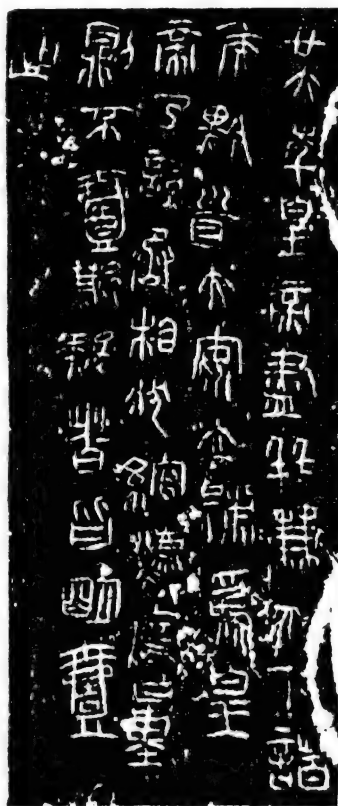 廿六年皇帝盡并兼天下諸
矦黔首大安立號為皇
帝乃詔丞相狀綰灋度量
則不壹歉疑者皆明壹
之